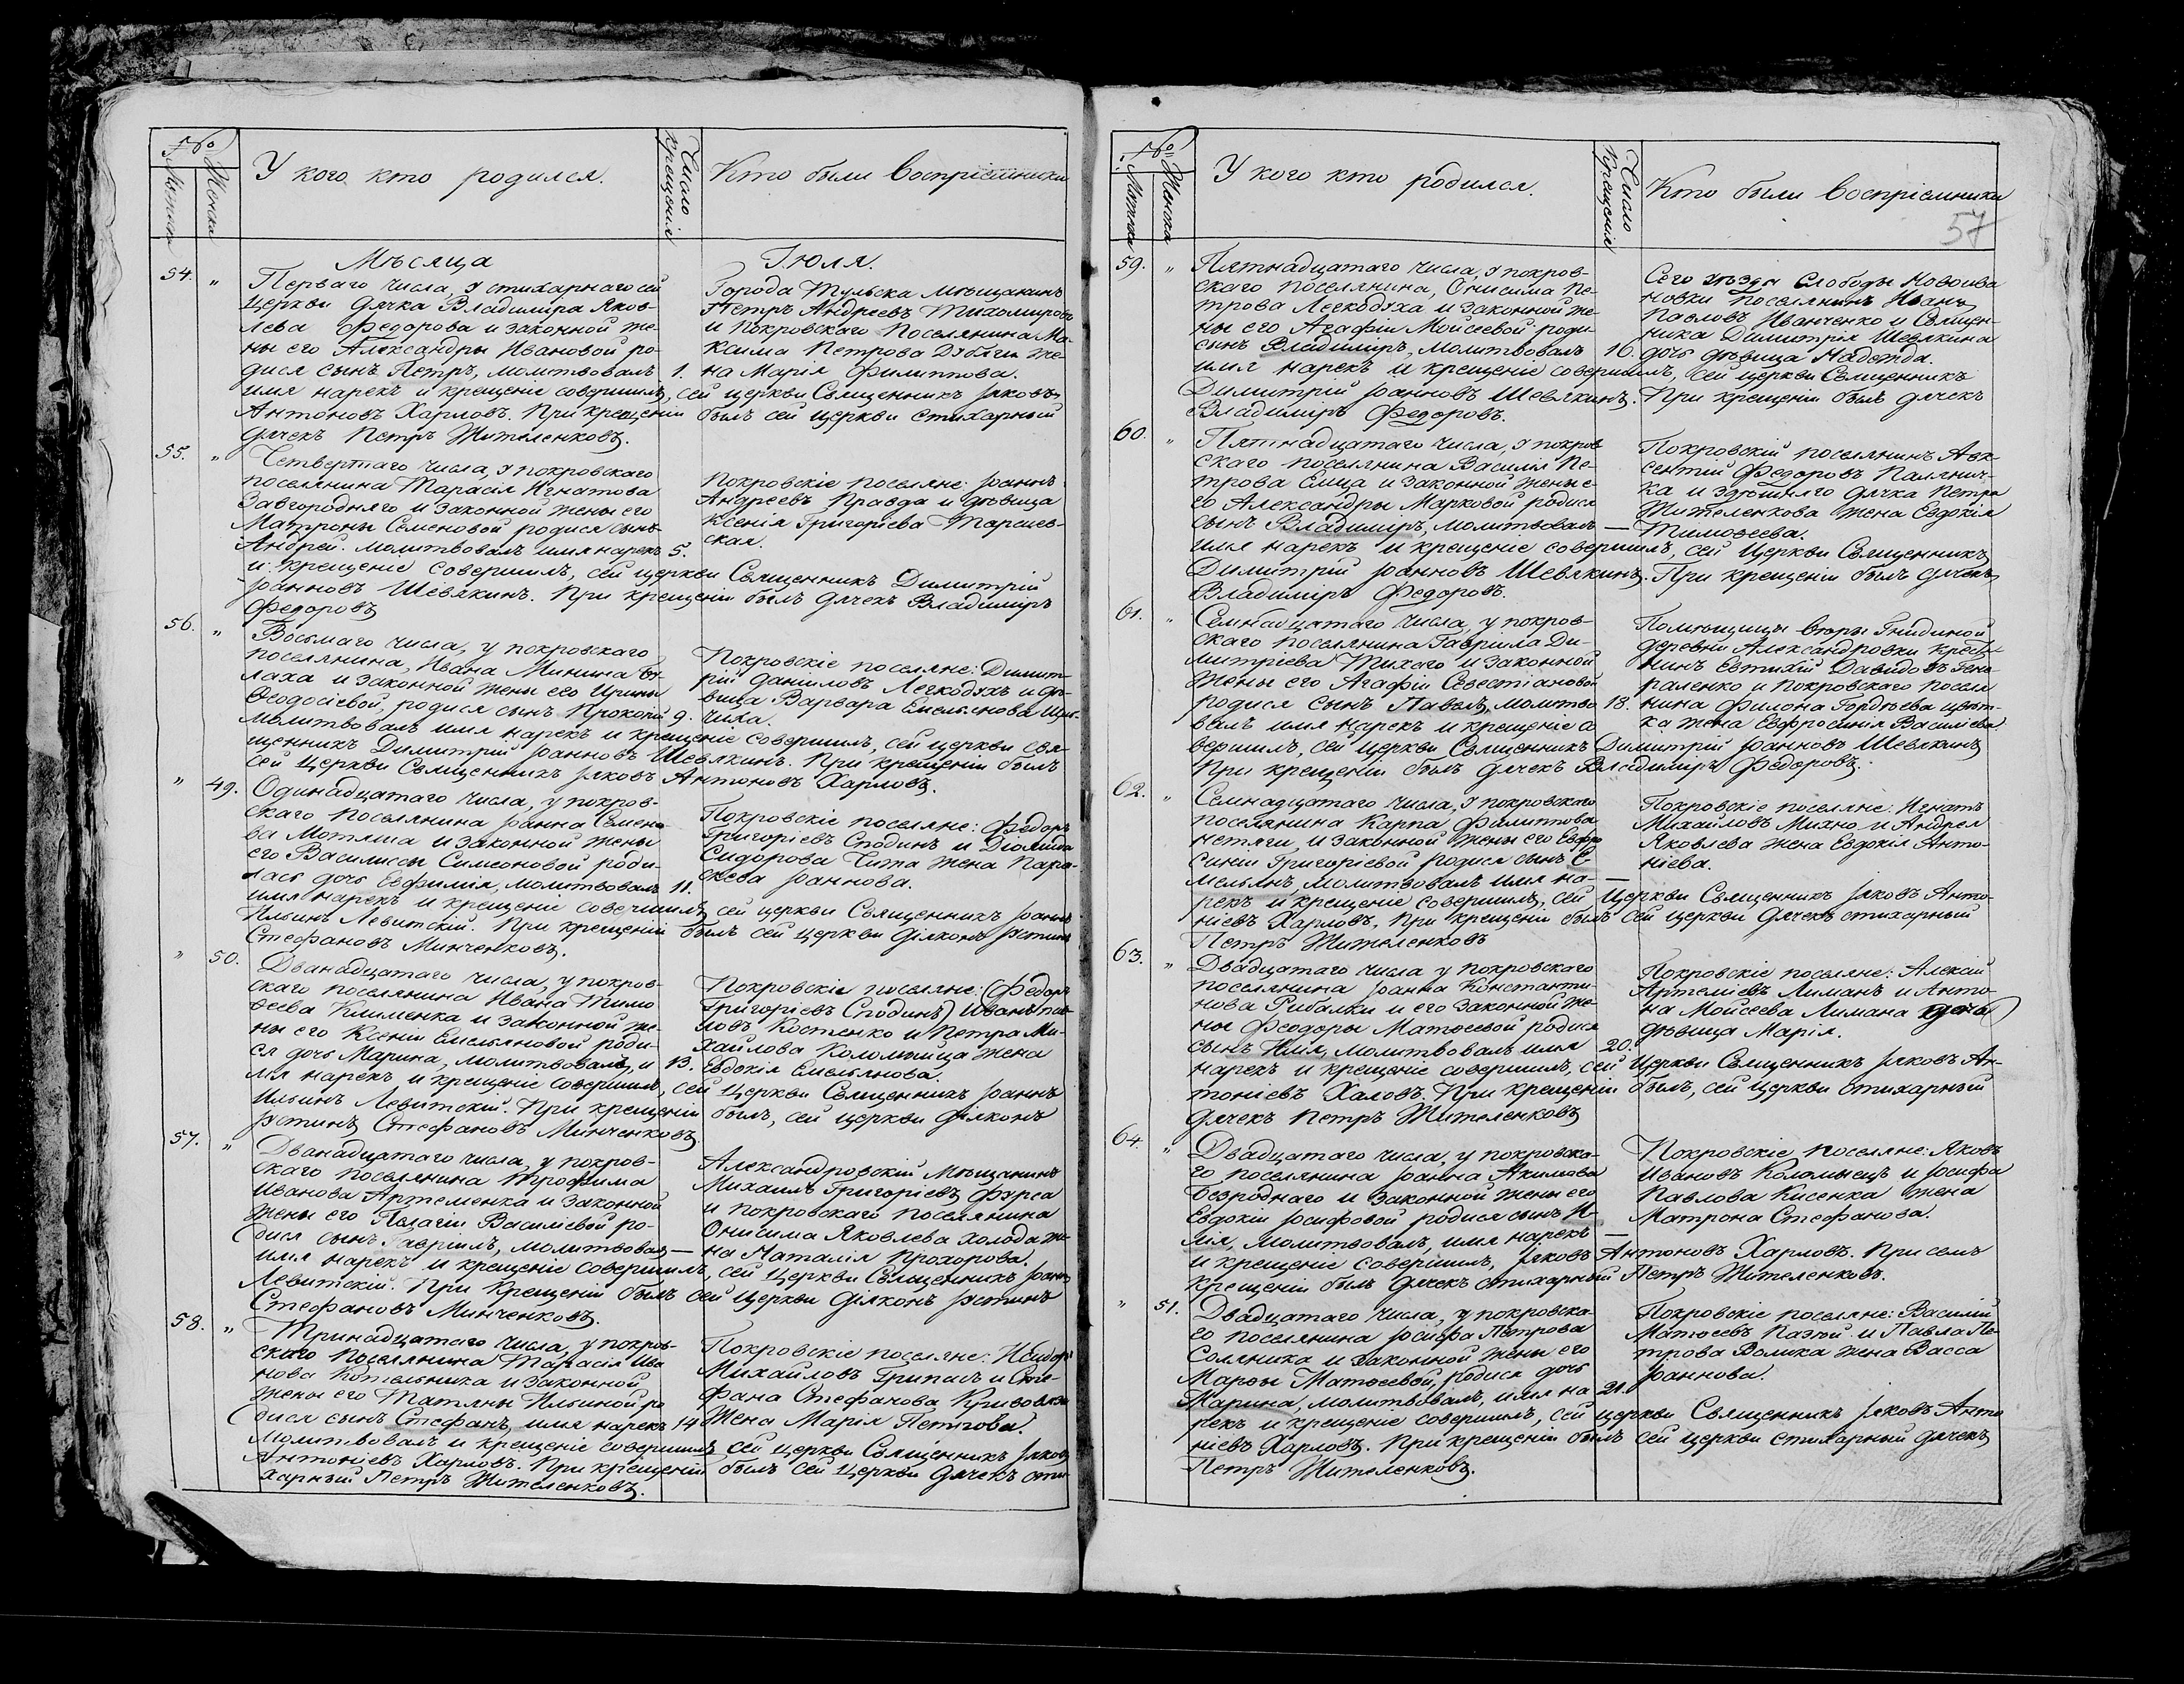 №
Мужска
Женска
У кого кто родился.
Число крещенія
Кто были воспріемники
Мѣсяца Іюля.
54. „ Перваго числа, у стихарнаго сей
Церкви дячка Владиміра Яков-
лева Федорова и законной же-
ны его Александры Ивановой ро-
дися сынъ Петръ, молитвовалъ 1.
имя нарекъ и крещеніе совершилъ, сей церкви Священникъ Іяковъ
Антоновъ Харловъ. При крещеніи былъ сей церкви стихарный
дячекъ Петръ Жителенковъ.
Города Тульска мѣщанинъ
Петръ Андреевъ Тихомировъ
и покровскаго поселянина Ма-
ксима Петрова Дубаги же-
на Марія Филиппова.
55. „ Четвертаго числа, у покровскаго
поселянина Тарасія Игнатова
Завгородняго и законной жены его
Матроны Семеновой родися сынъ
Андрей. молитвовалъ имя нарекъ 5.
и крещеніе совершилъ, сей церкви Священникъ Димитрій
Іоанновъ Шевякинъ. При крещеніи былъ дячекъ Владиміръ
Федоровъ
Покровскіе поселяне: Іоаннъ
Андреевъ Правда и дѣвица
Ксенія Григоріева Тарсиев-
ская.
56. „ Восьмаго числа, у покровскаго
поселянина, Ивана Минина
лаха и законной жены его Ирины
Ѳеодосіевой, родися сынъ Прокопій 9.
молитвовалъ имя нарекъ и крещеніе совершилъ, сей церкви свя-
щенникъ Димитрій Іоанновъ Шевякинъ. При крещеніи былъ
сей церкви Священникъ Іяковъ Антоновъ Харловъ.
Покровскіе поселяне: Димит-
рій Даниловъ Легкодухъ и дѣ-
вица Варвара Емельянова
чиха.
„ 49. Одинадцатаго числа, у покров-
скаго поселянина Іоанна Семено
ва Мотяша и законной жены
его Василисы Симеоновой роди-
лась дочь Евфимія, молитвовалъ 11.
имя нарекъ и крещеніе совершилъ, сей церкви Священникъ Іоаннъ
Ильинъ Левитскій. При крещеніи былъ сей церкви діяконъ Іустинъ
Стефановъ Минченковъ.
Покровскіе поселяне: Федоръ
Григоріевъ Сподинъ и Діомида
Сидорова Чита жена Пара-
скева Іоаннова.
„ 50. Дванадцатаго числа, у покров-
скаго поселянина Ивана Тимо
ѳеева Клименка и законной же-
ны его Ксеніи Емельяновой роди-
ся дочь Марина, молитвовалъ, и 13.
мя нарекъ и крещеніе совершилъ, сей церкви Священникъ Іоаннъ
Ильинъ Левитскій. При крещеніи былъ, сей церкви діяконъ
Іустинъ Стефановъ Минченковъ.
Покровскіе поселяне: (Федоръ
Григоріевъ Сподинъ) Иванъ пав-
ловъ Костенко и Петра Ми-
хайлова Коломыйца жена
Евдокія Емельянова.
57. „ Дванадцатаго числа, у покров-
скаго поселянина Трофима
Иванова Артеменка и законной
жены его Пелагіи Василіевой ро-
дися сынъ Гавріилъ, молитвовалъ —
имя нарекъ и крещеніе совершилъ, сей церкви Священникъ Іоаннъ
Левитскій. При крещеніи былъ сей церкви діяконъ Іустинъ
Стефановъ Минченковъ.
Александровскій мѣщанинъ
Михаилъ Григоріевъ Фурса
и покровскаго поселянина
Онисима Яковлева Холода же-
на Наталія Прохорова.
58. „ Тринадцатаго числа, у покров-
скаго поселянина Тарасія Ива
нова Котельника и законной
жены его Татяны Ильиной ро
дися сынъ Стефанъ, имя нарекъ 14
молитвовалъ и крещеніе совершилъ сей церкви Священникъ Іяковъ
Антоніевъ Харловъ. При крещеніи былъ сей церкви дячекъ сти-
харный Петръ Жителенковъ.
Покровскіе поселяне: Исидоръ
Михайловъ Грипасъ и Сте-
фана Стефанова
жена Марія Петрова.
№
Мужска
Женска
У кого кто родился.
Число крещенія
Кто были воспріемники
57
59. „ Пятнадцатаго числа, у покров-
скаго поселянина, Онисима Пе-
трова Легкодуха и законной же
ны его Агафіи Мойсеевой роди-
сынъ Владиміръ, молитвовалъ 16.
имя нарекъ и крещеніе совершилъ, сей церкви Священникъ
Димитрій Іоанновъ Шевякинъ. При крещеніи былъ дячекъ
Владиміръ Федоровъ.
Сего уѣзда Слободы Новоива
новки поселянинъ Иванъ
Павловъ Иванченко и Священ-
ника Димитрія Шевякина
дочь дѣвица Надежда.
60. „ Пятнадцатаго числа, у покров
скаго поселянина Василія Пе-
трова Сица и законной жены е-
го Александры Марковой родися
сынъ Владиміръ, молитвовалъ —
имя нарекъ и крещеніе совершилъ, сей церкви Священникъ
Димитрій Іоанновъ Шевякинъ. При крещеніи былъ дячекъ
Владиміръ Федоровъ.
Покровскій поселянинъ Авк-
сентій Федоровъ Палянич-
ка и здѣшняго дячка Петра
Жителенкова жена Евдокія
Тимоѳеева.
61. „ Семнадцатаго числа, у покров-
скаго поселянина Гавріила Ди-
митріева Тихаго и законной
жены его Агафіи Севестіановой
родися сынъ Павелъ, молитво 18.
валъ имя нарекъ и крещеніе со
вершилъ, сей церкви Священникъ Димитрій Іоанновъ Шевякинъ
При крещеніи былъ дячекъ Владиміръ Федоровъ.
Помѣщицы Гнидиной
деревни Александровки крестья
нинъ Евтихій Давидовъ Гене
раленко и покровскаго поселя
нина Филона Гордѣева цвѣт-
ка жена Евфросинія Василіева.
62. „ Семнадцатаго числа, у покровскаго
поселянина Карпа Филиппова
нетяги, и законной жены его Евфро
синіи Григоріевой родися сынъ Е-
мельянъ, молитвовалъ имя на- —
рекъ и крещеніе совершилъ, сей церкви Священникъ Іяковъ Анто-
ніевъ Харловъ. При крещеніи былъ сей церкви дячекъ стихарный
Петръ Жителенковъ
Покровскіе поселяне: Игнатъ
Михайловъ Михно и Андрея
Яковлева жена Евдокія Анто-
ніева.
63. „ Двадцатаго числа у покровскаго
поселянина Іоанна Константи-
нова Рибалки и его законной же-
ны Ѳеодоры Матѳеевой родися
сынъ Илія, молитвовалъ имя 20.
нарекъ и крещеніе совершилъ, сей церкви Священникъ Іяковъ Ан-
тоніевъ Халовъ. При крещеніи былъ, сей церкви стихарный
дячекъ Петръ Жителенковъ
Покровскіе поселяне: Алексій
Артеміевъ Лиманъ и Анто-
на Мойсеева Лимана дочь
дѣвица Марія.
64. „ Двадцатаго числа, у покровска-
го поселянина Іоанна Акимова
Безроднаго и законной жены его
Евдокіи Іосифовой родися сынъ И-
лія, молитвовалъ, имя нарекъ —
и крещеніе совершилъ, Іяковъ Антоновъ Харловъ. При семъ
крещеніи былъ дячекъ стихарный Петръ Жителенковъ.
Покровскіе поселяне: Яковъ
Ивановъ Коломыецъ и Іосифа
Павлова Кисенка жена
Матрона Стефанова.
„ 51. Двадцатаго числа, у покровска-
го поселянина Іосифа Петрова
Соляника и законной жены его
Марѳы Матѳеевой, родися дочь
Марина, молитвовалъ, имя на 21.
рекъ и крещеніе совершилъ, сей церкви Священникъ Іяковъ Анто
ніевъ Харловъ. При крещеніи былъ сей церкви стихарный дячекъ
Петръ Жителенковъ.
Покровскіе поселяне: Василій
Матѳеевъ Казюй и Павла Пе-
трова Волика жена Васса
Іоаннова.